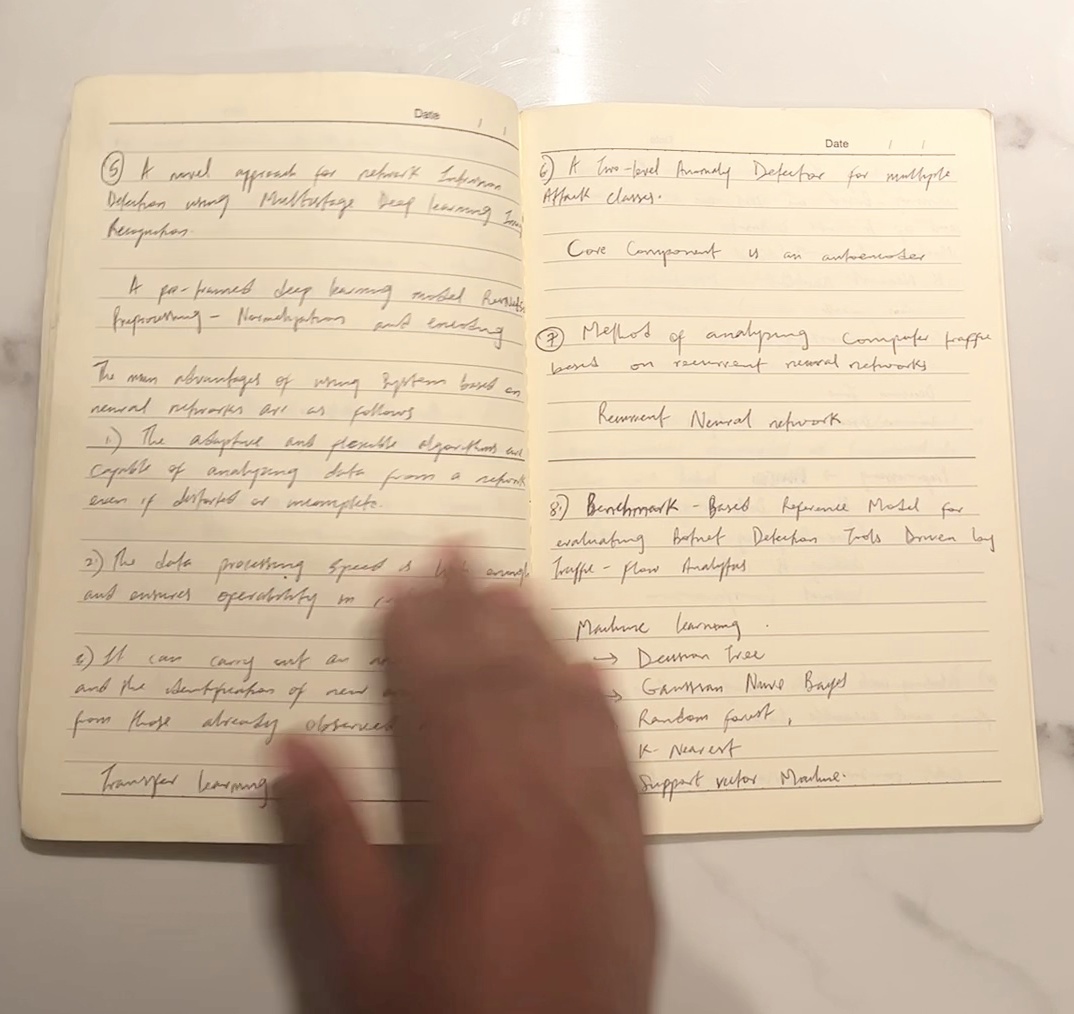 Date / /
⑤ A novel approach for network Intrusion
Detection using Multistage Deep learning
Recognition.
A pre-trained deep learning model
Preprocessing - Normalization and encoding
The main advantages of using system based on
neural networks are as follows
1.) The adaptive and flexible algorithms are
capable of analyzing data from a network
even if distorted or incomplete.
2.) The data processing speed is
and ensures operability in
) It can carry out an
and the identification of new
from those already observed
Transfer learning
Date / /
6) A Two-level Anomaly Detector for multiple
Attack classes.
Core Component is an autoencoder
⑦ Method of analyzing Computer traffic
based on recurrent neural networks
Recurrent Neural network
8.) Benchmark - Based Reference Model for
evaluating Botnet Detection Tools Driven by
Traffic - Flow Analytics
Machine learning .
→ Decision Tree
→ Gaussian Naive Bayes
Random forest ,
K- Nearest
Support vector Machine.